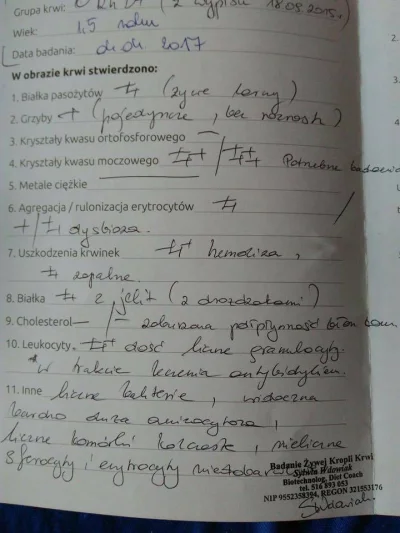 Grupa krwi: 0 Rh D+ (z wypisu 18.09.2015r)
Wiek: 1,5 roku
Data badania: 2017
W obrazie krwi stwierdzono:
1. Białka pasożytów ++ (żywe larwy)
2. Grzyby + (pojedyncze, bez rozrostu)
3. Kryształy kwasu ortofosforowego —
4. Kryształy kwasu moczowego +++ / +++ Potrzebne badania
5. Metale ciężkie —
6. Agregacja / rulonizacja erytrocytów ++ /
+ / ++ dysbioza.
7. Uszkodzenia krwinek +++ hemoliza,
++ zapalne.
8. Białka ++ z jelit (z drożdżakami)
9. Cholesterol — / — zaburzona półpłynność błon kom.
10. Leukocyty +++ dość liczne granulocyty.
*w trakcie leczenia antybiotykiem.
11. Inne liczne bakterie, widoczna
bardzo duża anizocytoza,
liczne komórki kolczaste, nieliczne
sferocyty i erytrocyty niedobarwliwe
Badanie Żywej Kropli Krwi
Sylwia Wdowiak
Biotechnolog, Diet Coach
tel. 516 893 053
NIP 9552358394, REGON 321553176
SWdowiak
2.
3.
4.
5.
6.
7.
8.
9.